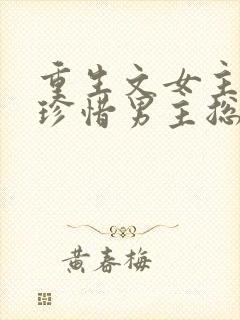 重生文女主
珍惜男主总
黄春梅